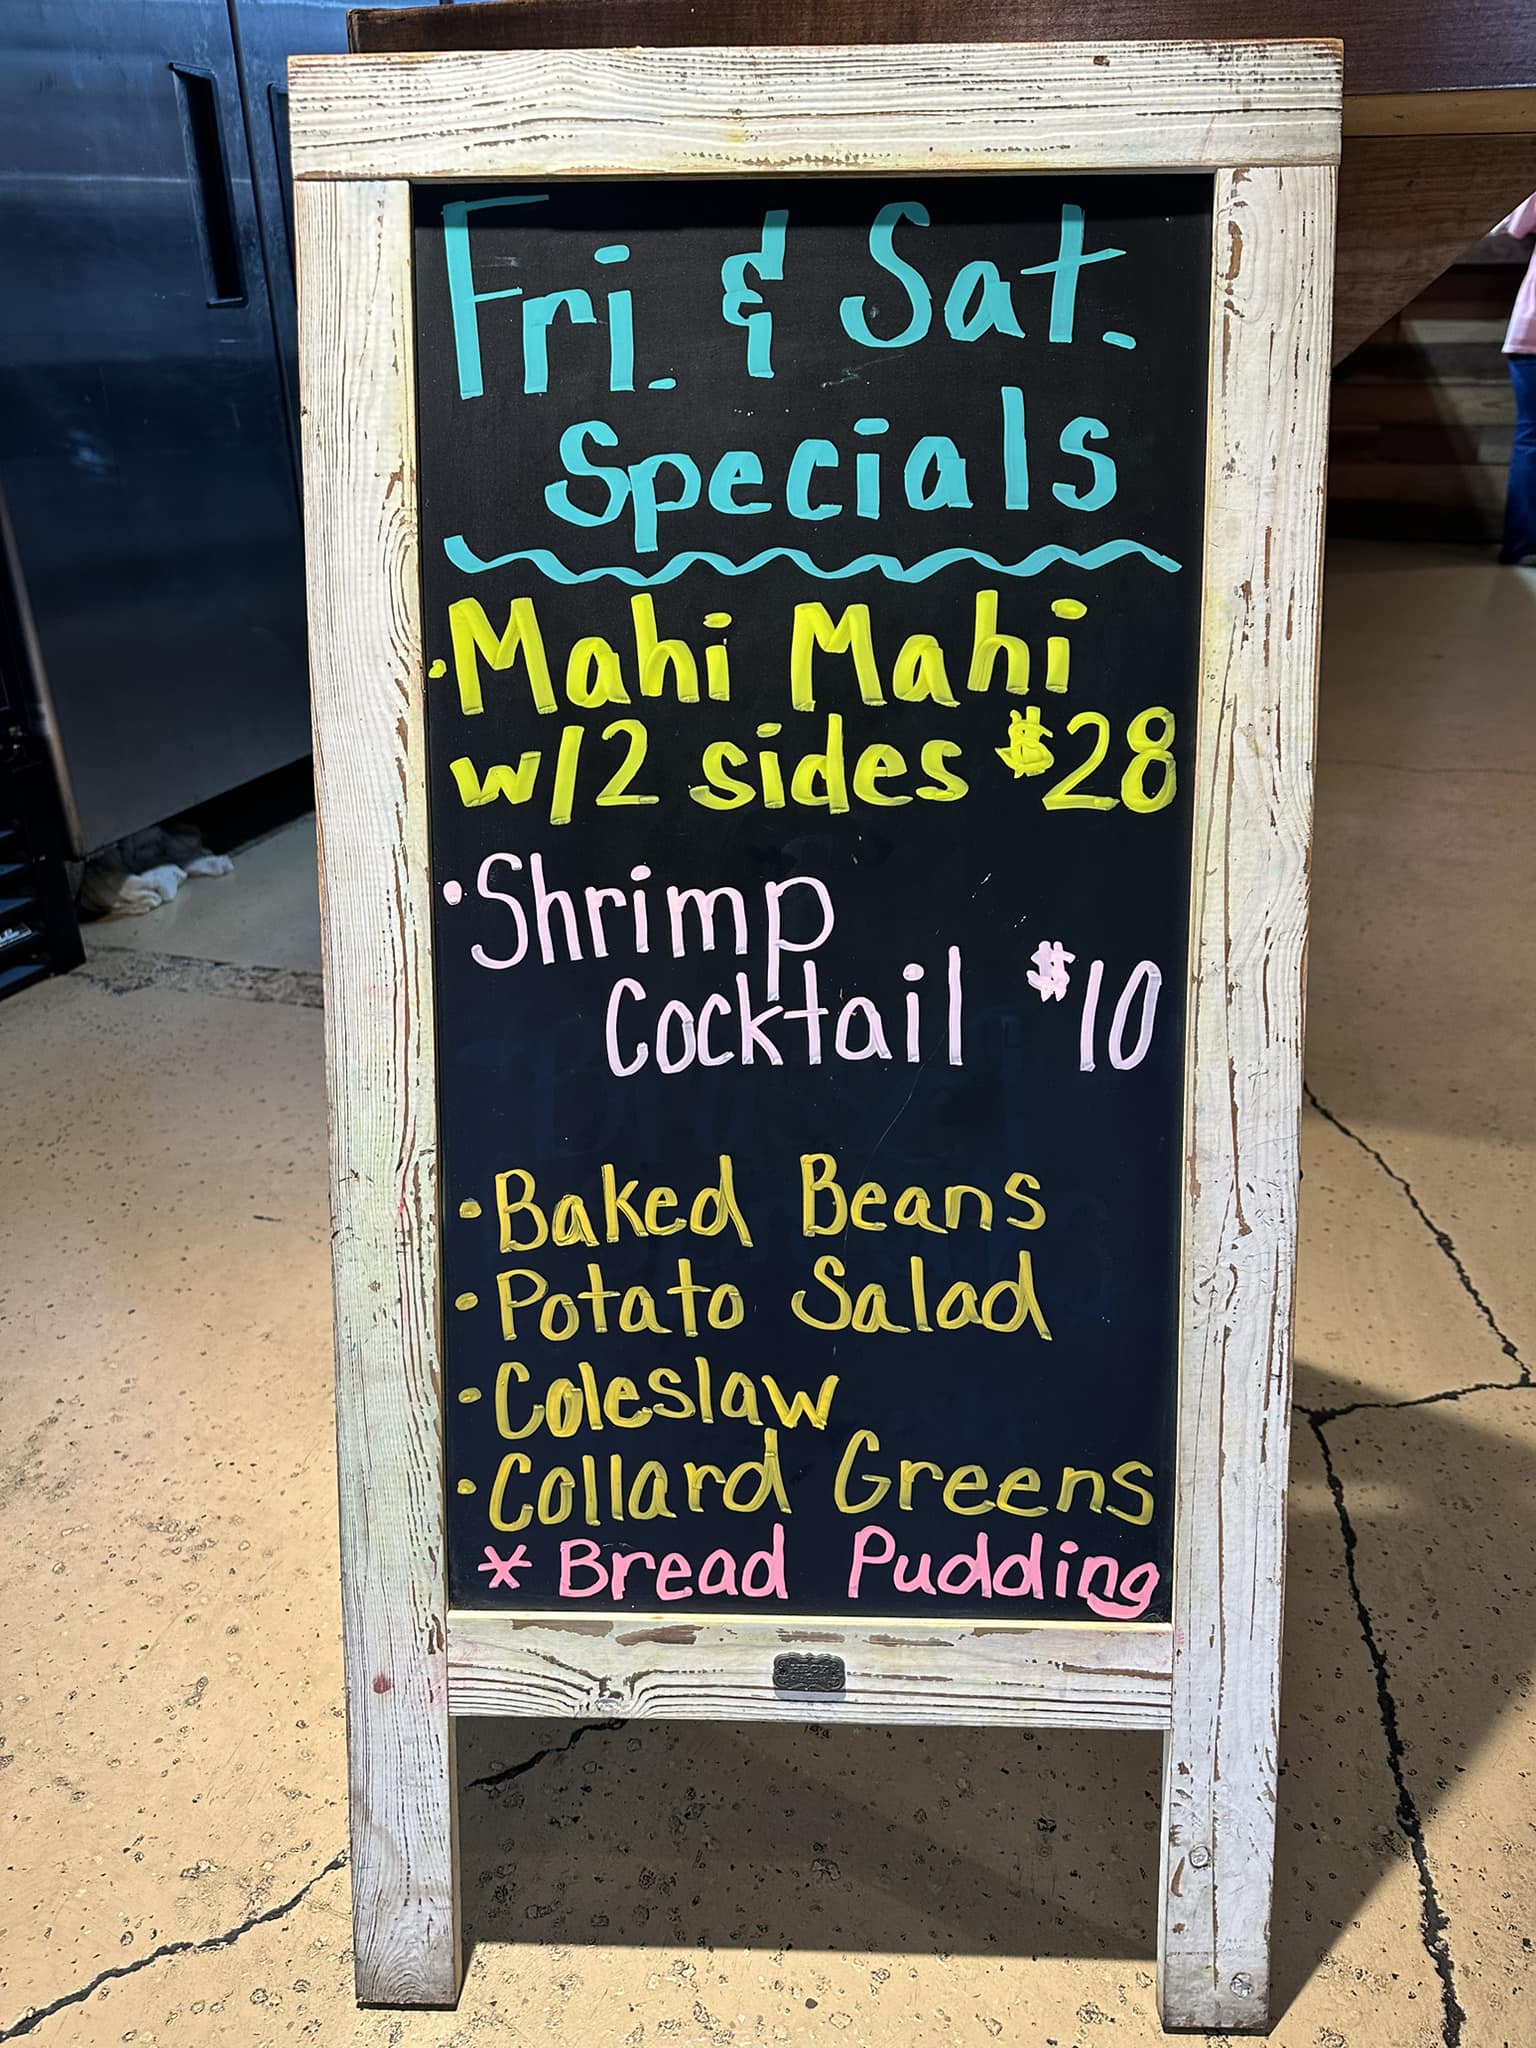 Fri. & Sat.
Specials
• Mahi Mahi
w/2 sides $28
• Shrimp
Cocktail $10
• Baked Beans
• Potato Salad
• Coleslaw
• Collard Greens
* Bread Pudding